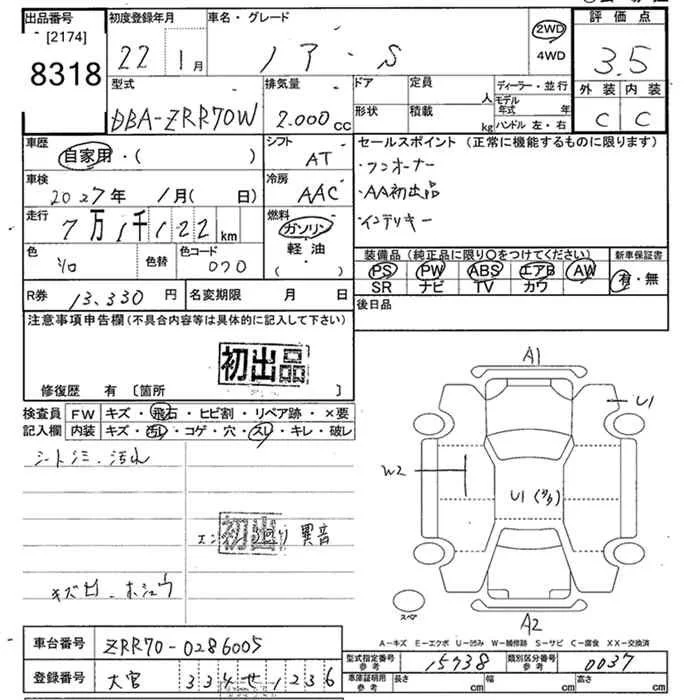 出品番号 [2174] 8318
初度登録年月 22 1月
車名・グレード ノア・S
2WD
4WD
評価点 3.5
型式 DBA-ZRR70W
排気量 2.000cc
ドア 定員 人
形状 積載 kg
ディーラー・並行
モデル年式 年
ハンドル 左・右
外装 内装
C C
車歴 自家用・( )
シフト AT
セールスポイント(正常に機能するものに限ります)
・ワンオーナー
・AA初出品
・インテリキー
車検 2027年 1月( 日)
冷房 AAC
走行 7万1千122km
燃料 ガソリン
軽油
( )
色 シロ 色替 色コード 070
装備品(純正品に限り○をつけてください)
PS PW ABS エアB AW
SR ナビ TV カワ
新車保証書 有・無
R券 13.330円 名変期限 月 日
後日品
注意事項申告欄(不具合内容等は具体的に記入して下さい)
初出品
修復歴 有〔箇所 〕
検査員記入欄
FW キズ・飛石・ヒビ割・リペア跡・×要
内装 キズ・汚レ・コゲ・穴・スレ・キレ・破レ
シートシミ・汚れ
初出
異音
キズ凹・ホシュウ
A1
U1
W2
U1
A2
スペア
A-キズ E-エクボ U-凹み W-補修跡 S-サビ C-腐食 XX-交換済
車台番号 ZRR70-0286005
登録番号 大宮 334せ1236
型式指定番号 参考 15738 類別区分番号 参考 0037
車庫証明用 参考 長さ cm 幅 cm 高さ cm